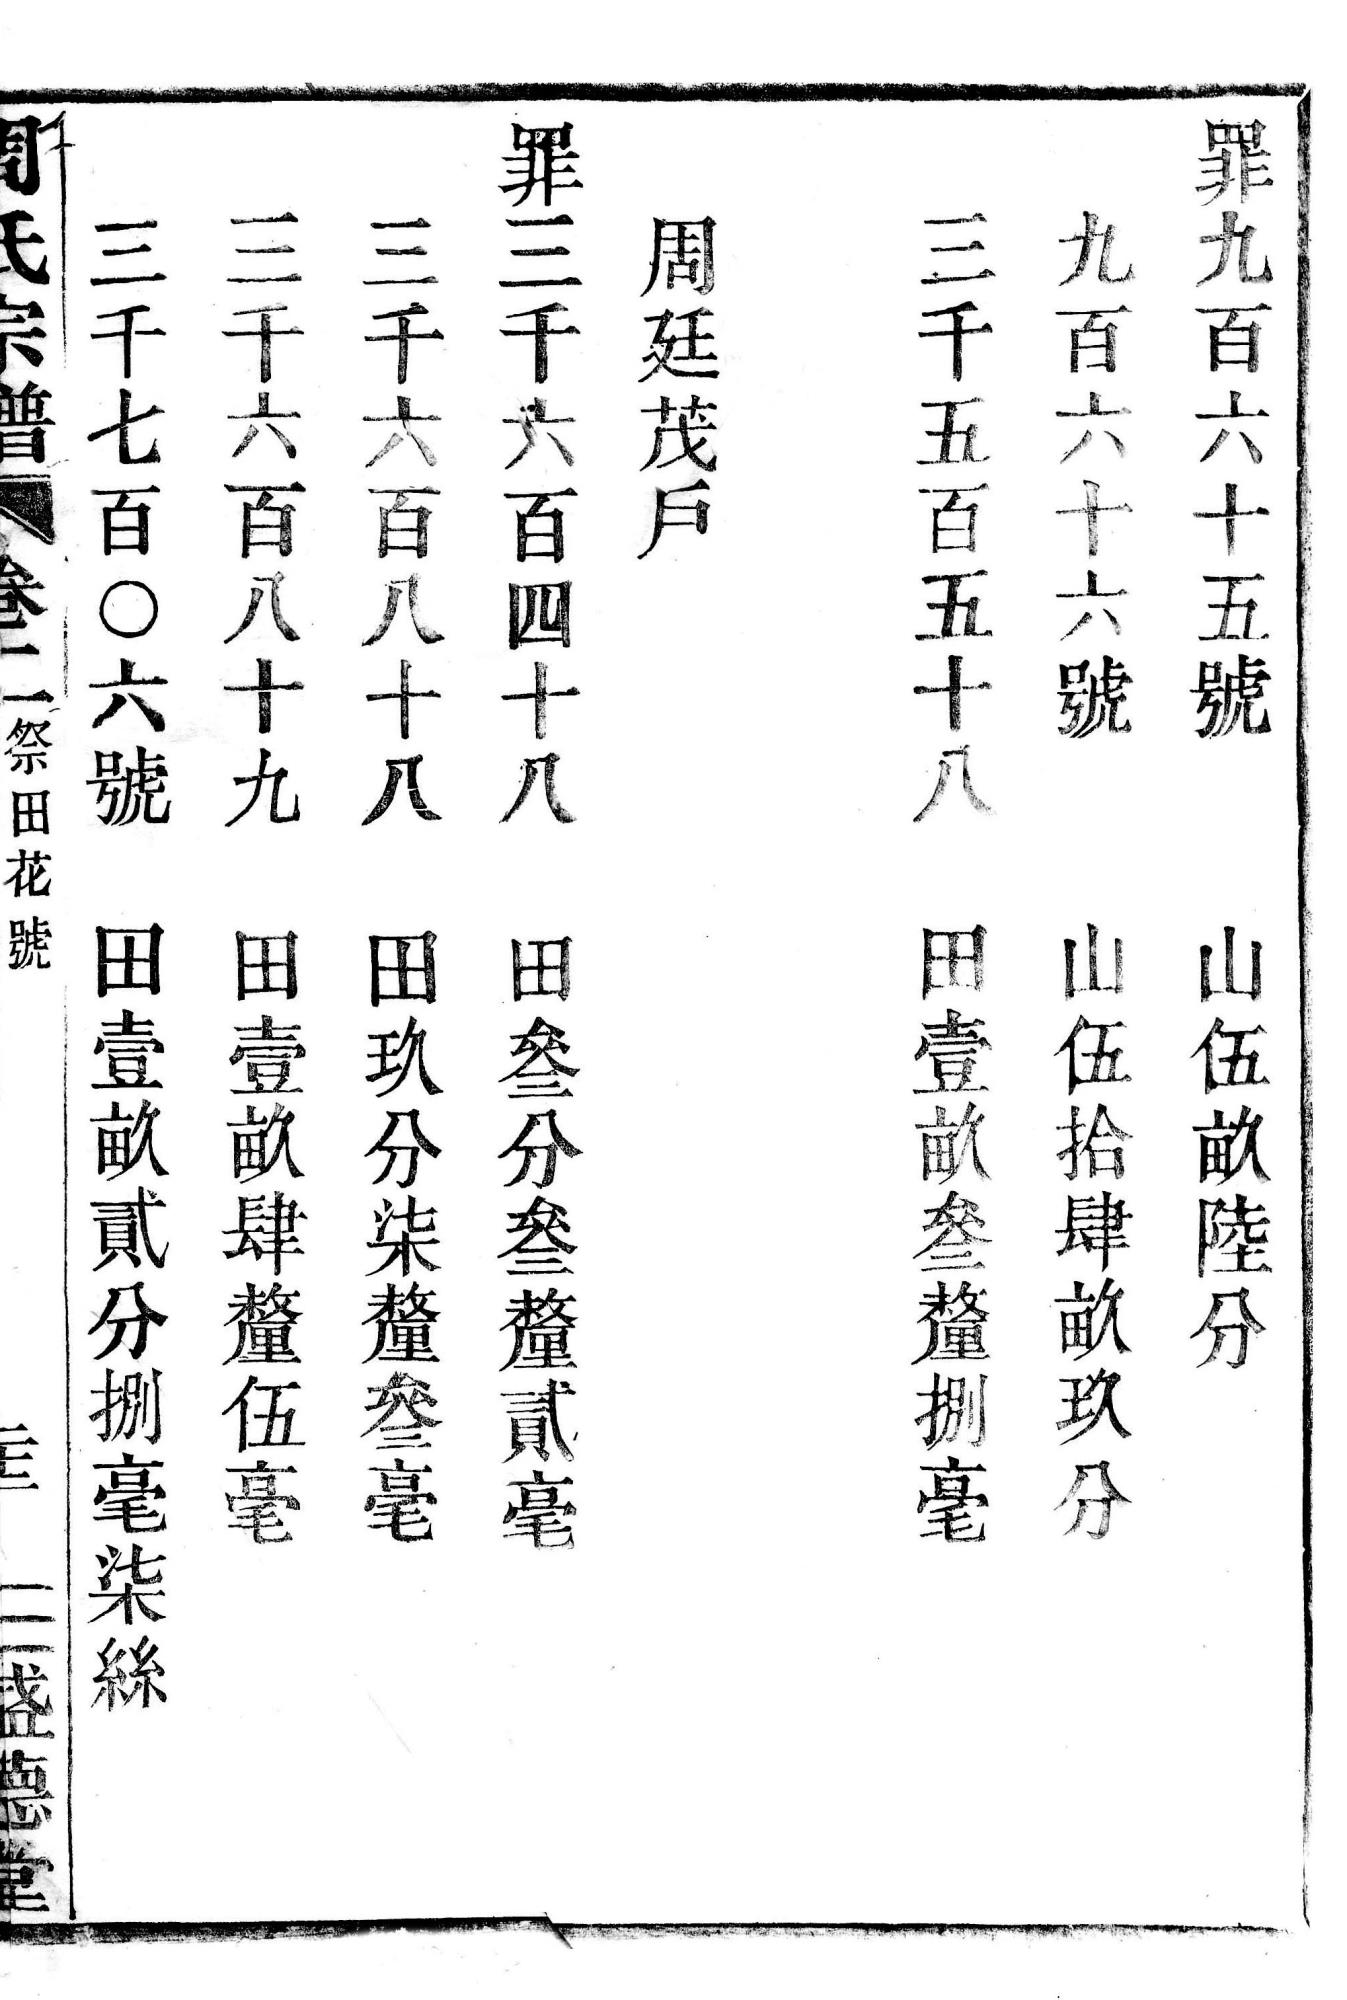 罪九百六十五號　山伍畝陸分
九百六十六號　山伍拾肆畝玖分
三千五百五十八　田壹畝叄釐捌毫
周廷茂戶
罪三千六百四十八　田叄分叄釐貳毫
三千六百八十八　田玖分柒釐叄毫
三千六百八十九　田壹畝肆釐伍毫
三千七百〇六號　田壹畝貳分捌毫柒絲
周氏宗譜　卷二　祭田花號　二　盛德堂